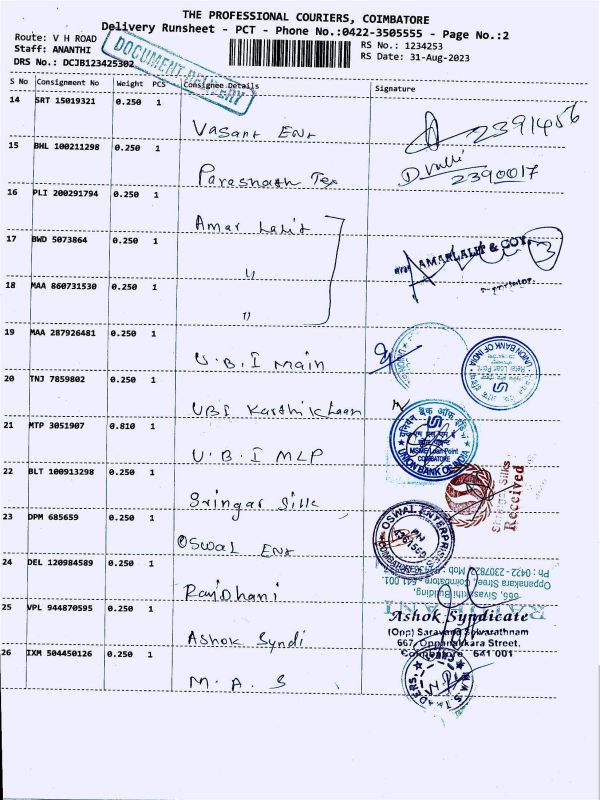 THE PROFESSIONAL COURIERS, COIMBATORE
Delivery Runsheet - PCT - Phone No.:0422-3505555 - Page No.:2
Route: V H ROAD
RS No.: 1234253
Staff: ANANTHI
RS Date: 31-Aug-2023
DRS No.: DCJB123425302
DOCUMENT DELIVERY
S No Consignment No Weight PCS Consignee Details Signature
14 SRT 15019321 0.250 1 Vasant Ent 2391456
15 BHL 100211298 0.250 1 Parasnath Tex D. Valli 2390017
16 PLI 200291794 0.250 1 Amar Lalit
17 BWD 5073864 0.250 1 " AMARLALIT & COY.
18 MAA 860731530 0.250 1 "
19 MAA 287926481 0.250 1 U.B.I Main UNION BANK OF INDIA
20 TNJ 7859802 0.250 1 UBI
21 MTP 3051907 0.810 1 U.B.I MLP यूनियन बैंक ऑफ इंडिया MSME Loan Point COIMBATORE UNION BANK OF INDIA
22 BLT 100913298 0.250 1 Sringar Silk Silks Received
23 DPM 685659 0.250 1 Oswal Ent OSWAL ENTERPRISES
24 DEL 120984589 0.250 1 Rajdhani
Ph : 0422 - 2307822 Mob
Oppanakara Street, Coimbatore - 641 001.
666, Sivasakthi Building,
25 VPL 944870595 0.250 1 Ashok Syndi Ashok Syndicate
(Opp) Saravana Selvarathnam
667, Oppanakkara Street,
Coimbatore 641 001
26 IXM 504450126 0.250 1 M.A.S